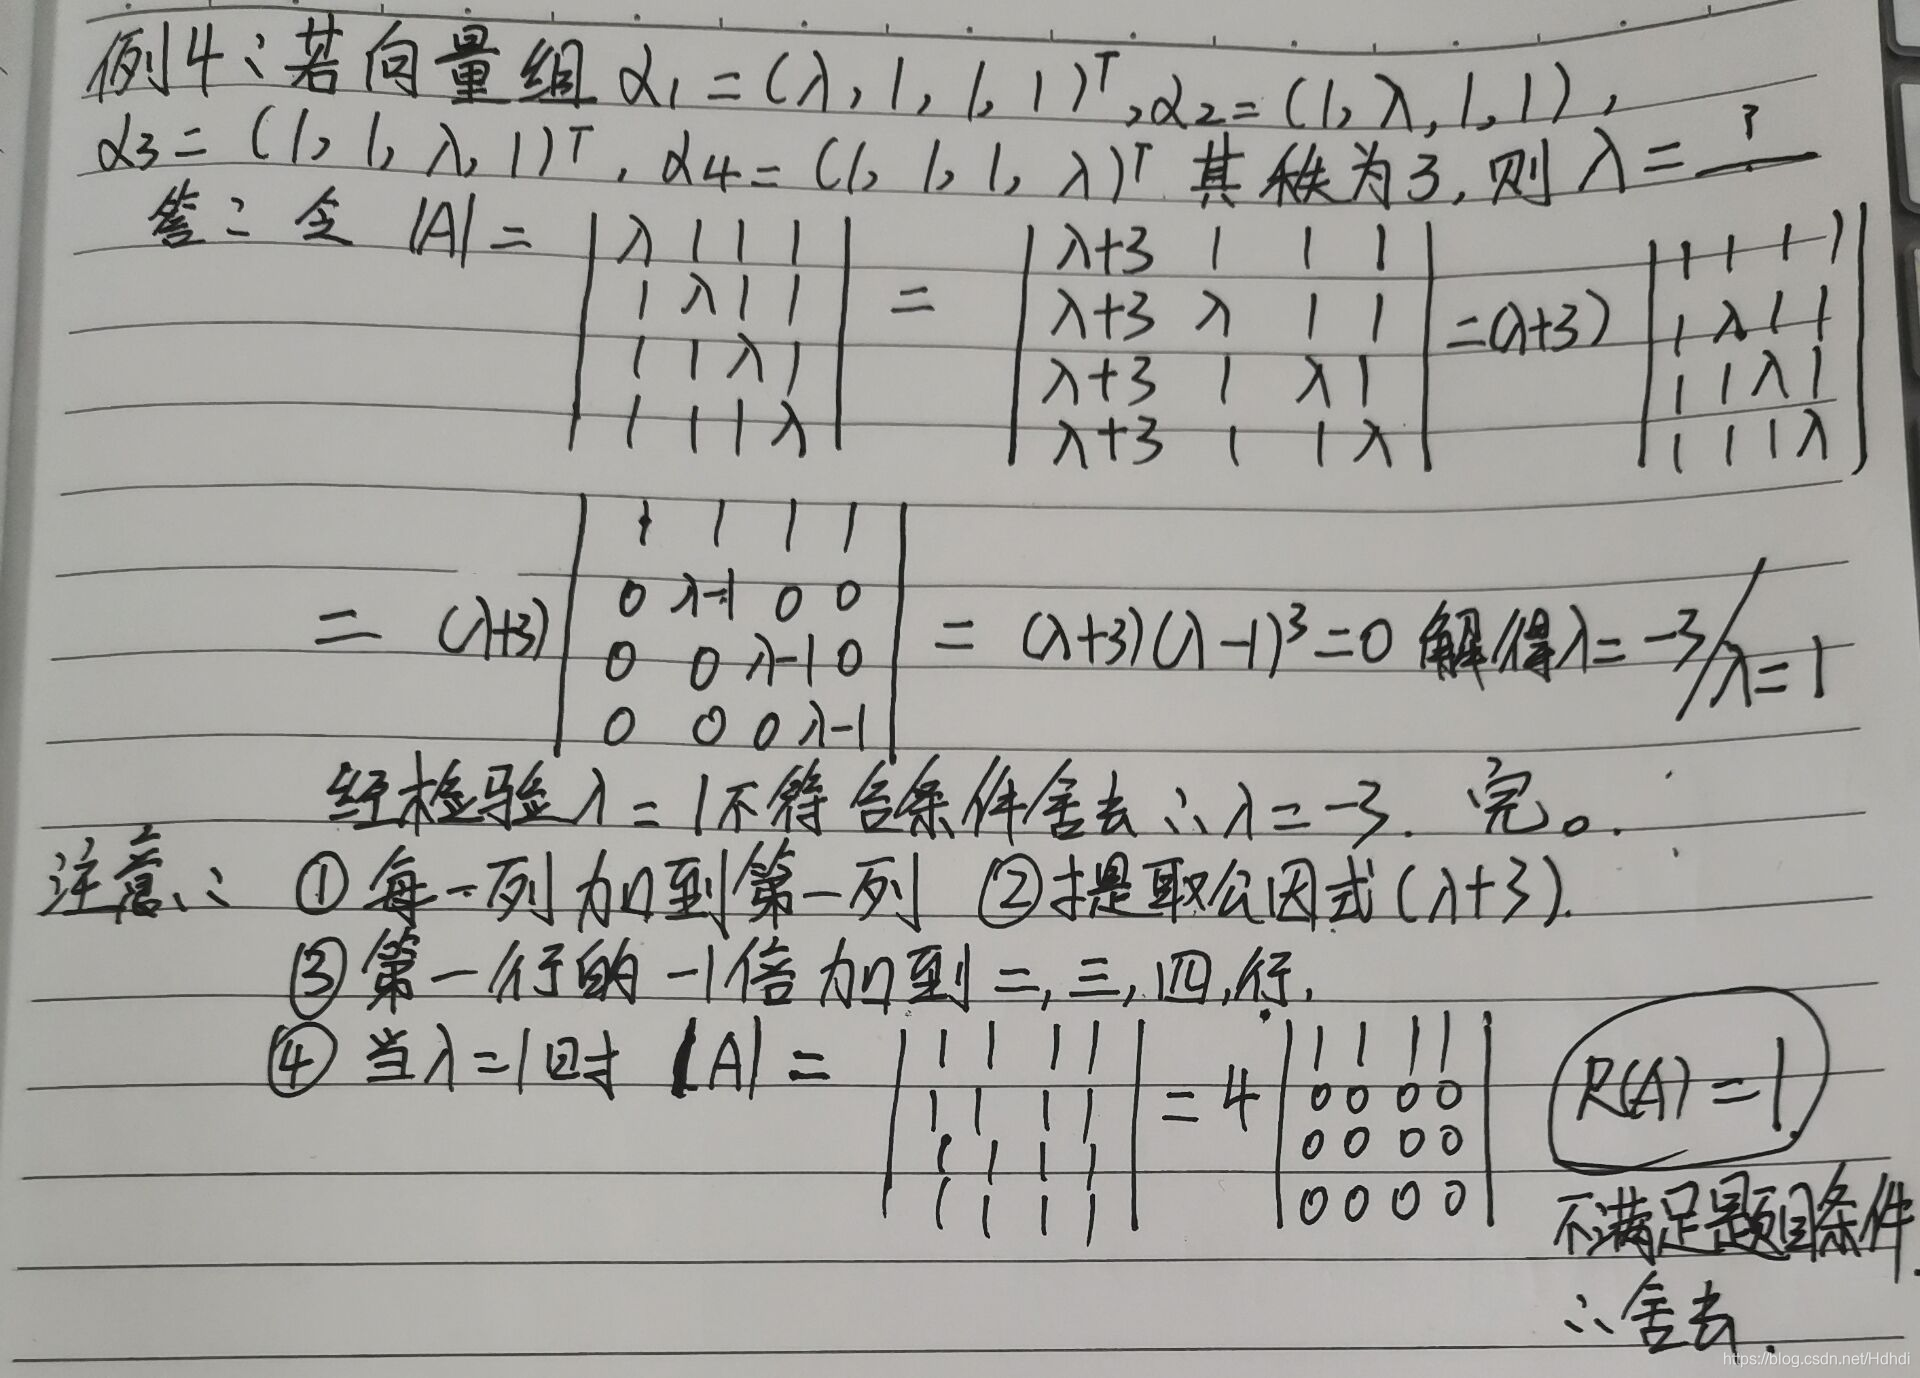 例4：若向量组 α1=(λ,1,1,1)ᵀ,α2=(1,λ,1,1),
α3=(1,1,λ,1)ᵀ,α4=(1,1,1,λ)ᵀ 其秩为3,则 λ=?
答：令 |A|= |λ 1 1 1; 1 λ 1 1; 1 1 λ 1; 1 1 1 λ| = |λ+3 1 1 1; λ+3 λ 1 1; λ+3 1 λ 1; λ+3 1 1 λ| =(λ+3) |1 1 1 1; 1 λ 1 1; 1 1 λ 1; 1 1 1 λ|
= (λ+3) |1 1 1 1; 0 λ-1 0 0; 0 0 λ-1 0; 0 0 0 λ-1| = (λ+3)(λ-1)³=0 解得λ=-3/λ=1
经检验λ=1不符合条件舍去∴λ=-3. 完。
注意：①每一列加到第一列 ②提取公因式(λ+3).
③第一行的-1倍加到二,三,四,行.
④当λ=1时 |A|= |1 1 1 1; 1 1 1 1; 1 1 1 1; 1 1 1 1| =4 |1 1 1 1; 0 0 0 0; 0 0 0 0; 0 0 0 0| R(A)=1.
不满足题目条件.
∴舍去.
https://blog.csdn.net/Hdhdi